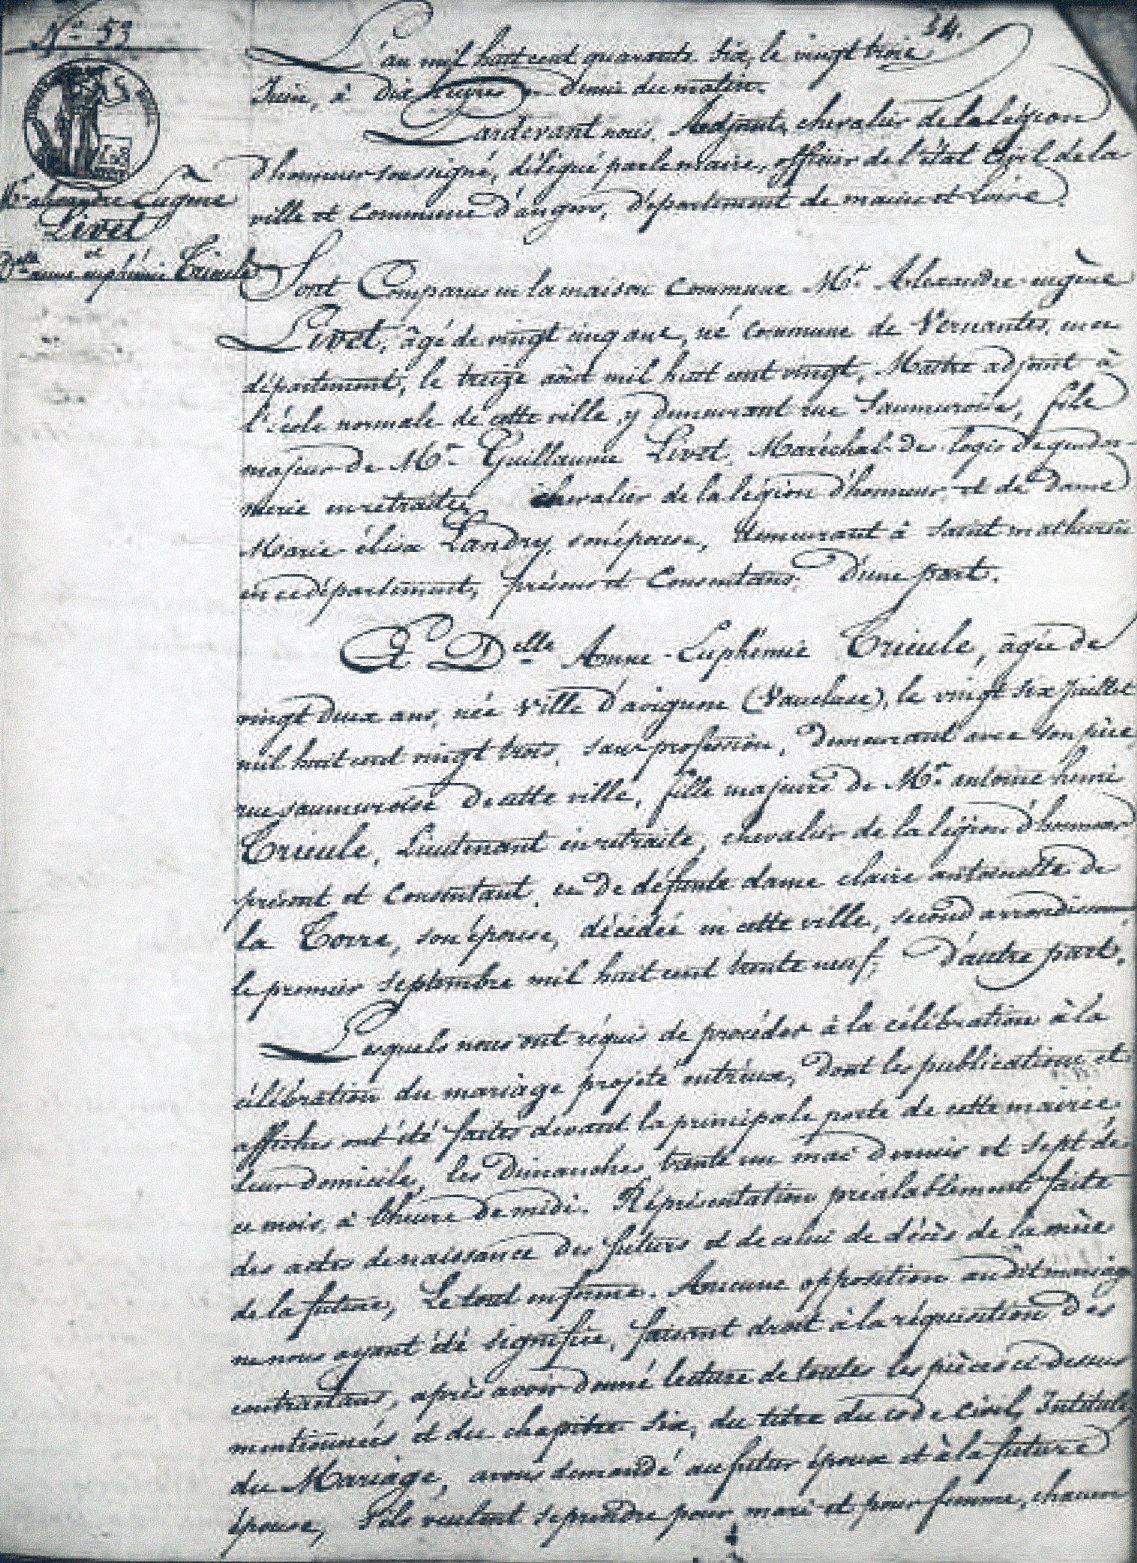 34.
N° 53
Mr. alexandre Eugène
Livet
et
Delle anne euphémie Tricule
L'an mil huit cent quarante six, le vingt trois
Juin, à dix heures et demie du matin.
Pardevant nous, Adjoint, chevalier de la légion
d'honneur soussigné, délégué par le maire, officier de l'état civil de la
ville et commune d'angers, département de maine et Loire.
Sont Comparus en la maison commune Mr. Alexandre eugène
Livet, âgé de vingt cinq ans, né commune de Vernantes, en ce
département, le treize août mil huit cent vingt, Maître adjoint à
l'école normale de cette ville y demeurant rue Saumuroise, fils
majeur de Mr. Guillaume Livet, Maréchal des logis de gendar-
merie en retraite, chevalier de la légion d'honneur, et de dame
Marie élisa Landry, son épouse, demeurant à saint mathurin
en ce département, présens et Consentans, D'une part.
Et Delle Anne-Euphémie Tricule, âgée de
vingt deux ans, née ville d'avignon (Vaucluse), le vingt six Juillet
mil huit cent vingt trois, sans profession, demeurant avec son père,
rue saumuroise de cette ville, fille majeure de Mr. antoine henri
Tricule, Lieutenant en retraite, chevalier de la légion d'honneur
présent et consentant, et de défunte dame claire antoinette de
la Torre, son épouse, décédée en cette ville, second arrondissemt
le premier septembre mil huit cent trente neuf; D'autre part.
Lesquels nous ont requis de procéder à la célébration à la
célébration du mariage projeté entr'eux, dont les publications et
affiches ont été faites devant la principale porte de cette mairie
leur domicile, les Dimanches trente un mai dernier et sept de
ce mois, à l'heure de midi. Réprésentation préalablement faite
des actes de naissance des futurs et de celui de décès de la mère
de la future, Le tout en forme. Aucune opposition au dit mariage
ne nous ayant été signifiée, faisant droit à la réquisition des
contractans, après avoir donné lecture de toutes les pièces ci dessus
mentionnées et du chapitre six, du titre du code civil, Intitulé
du Mariage, avons demandé au futur époux et à la future
épouse, s'ils veulent se prendre pour mari et pour femme, chacun